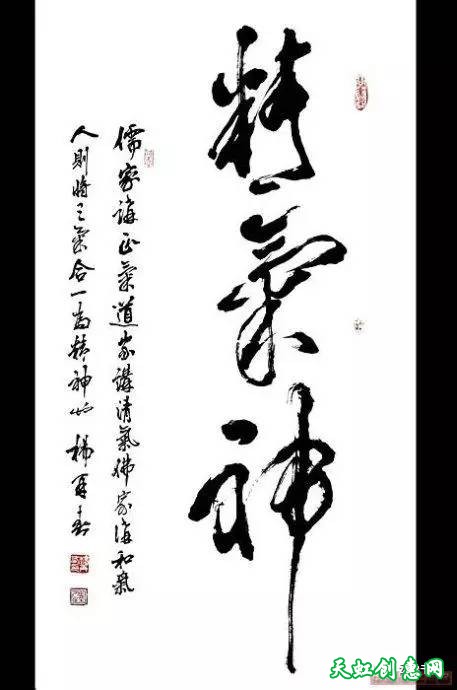 精氣神
儒家講正氣道家講清氣佛家講和氣
人則將三氣合一為精神也 楊再春
天虹创意网